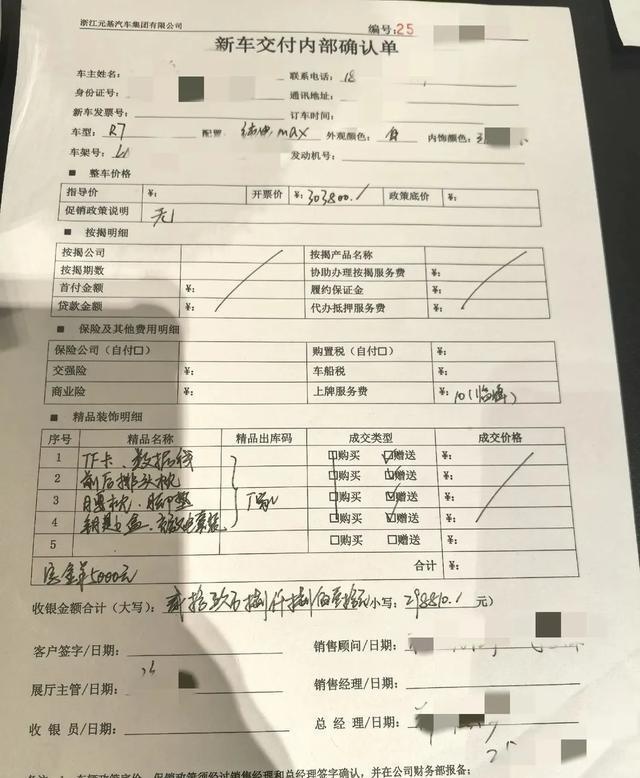 浙江元基汽车集团有限公司
编号:25
新车交付内部确认单
车主姓名: 联系电话: 18
身份证号: 通讯地址:
新车发票号: 订车时间:
车型: R7 配置: max 外观颜色: 内饰颜色:
车架号: 发动机号:
■ 整车价格
指导价 ¥: 开票价 ¥: 303800.1 政策底价 ¥:
促销政策说明 无
■ 按揭明细
按揭公司 按揭产品名称
按揭期数 协助办理按揭服务费 ¥:
首付金额 ¥: 履约保证金 ¥:
贷款金额 ¥: 代办抵押服务费 ¥:
■ 保险及其他费用明细
保险公司(自付□) 购置税(自付□) ¥:
交强险 ¥: 车船税 ¥:
商业险 ¥: 上牌服务费 ¥: 10(临牌)
■ 精品装饰明细
序号 精品名称 精品出库码 成交类型 成交价格
1 TF卡、数据线 □购买 ☑赠送 ¥:
2 前后排头枕 □购买 ☑赠送 ¥:
3 □购买 ☑赠送 ¥:
4 □购买 ☑赠送 ¥:
5 □购买 □赠送 ¥:
定金单5000元 合计 ¥:
收银金额合计(大写): 贰拾玖万捌仟捌佰壹拾元 小写: 298810.1 元)
客户签字/日期: 销售顾问/日期:
展厅主管/日期: 销售经理/日期:
收 银 员/日期: 总 经 理/日期:
备注:1、车辆政策底价、促销政策须经过销售经理和总经理签字确认,并在公司财务部报备;